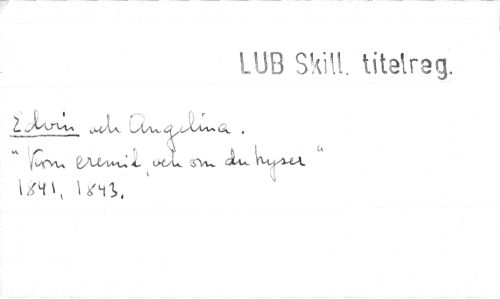 LUB Skill. titelreg.
Edvin och Angelina.
"Kom eremit, och om du hyser"
1841, 1843.